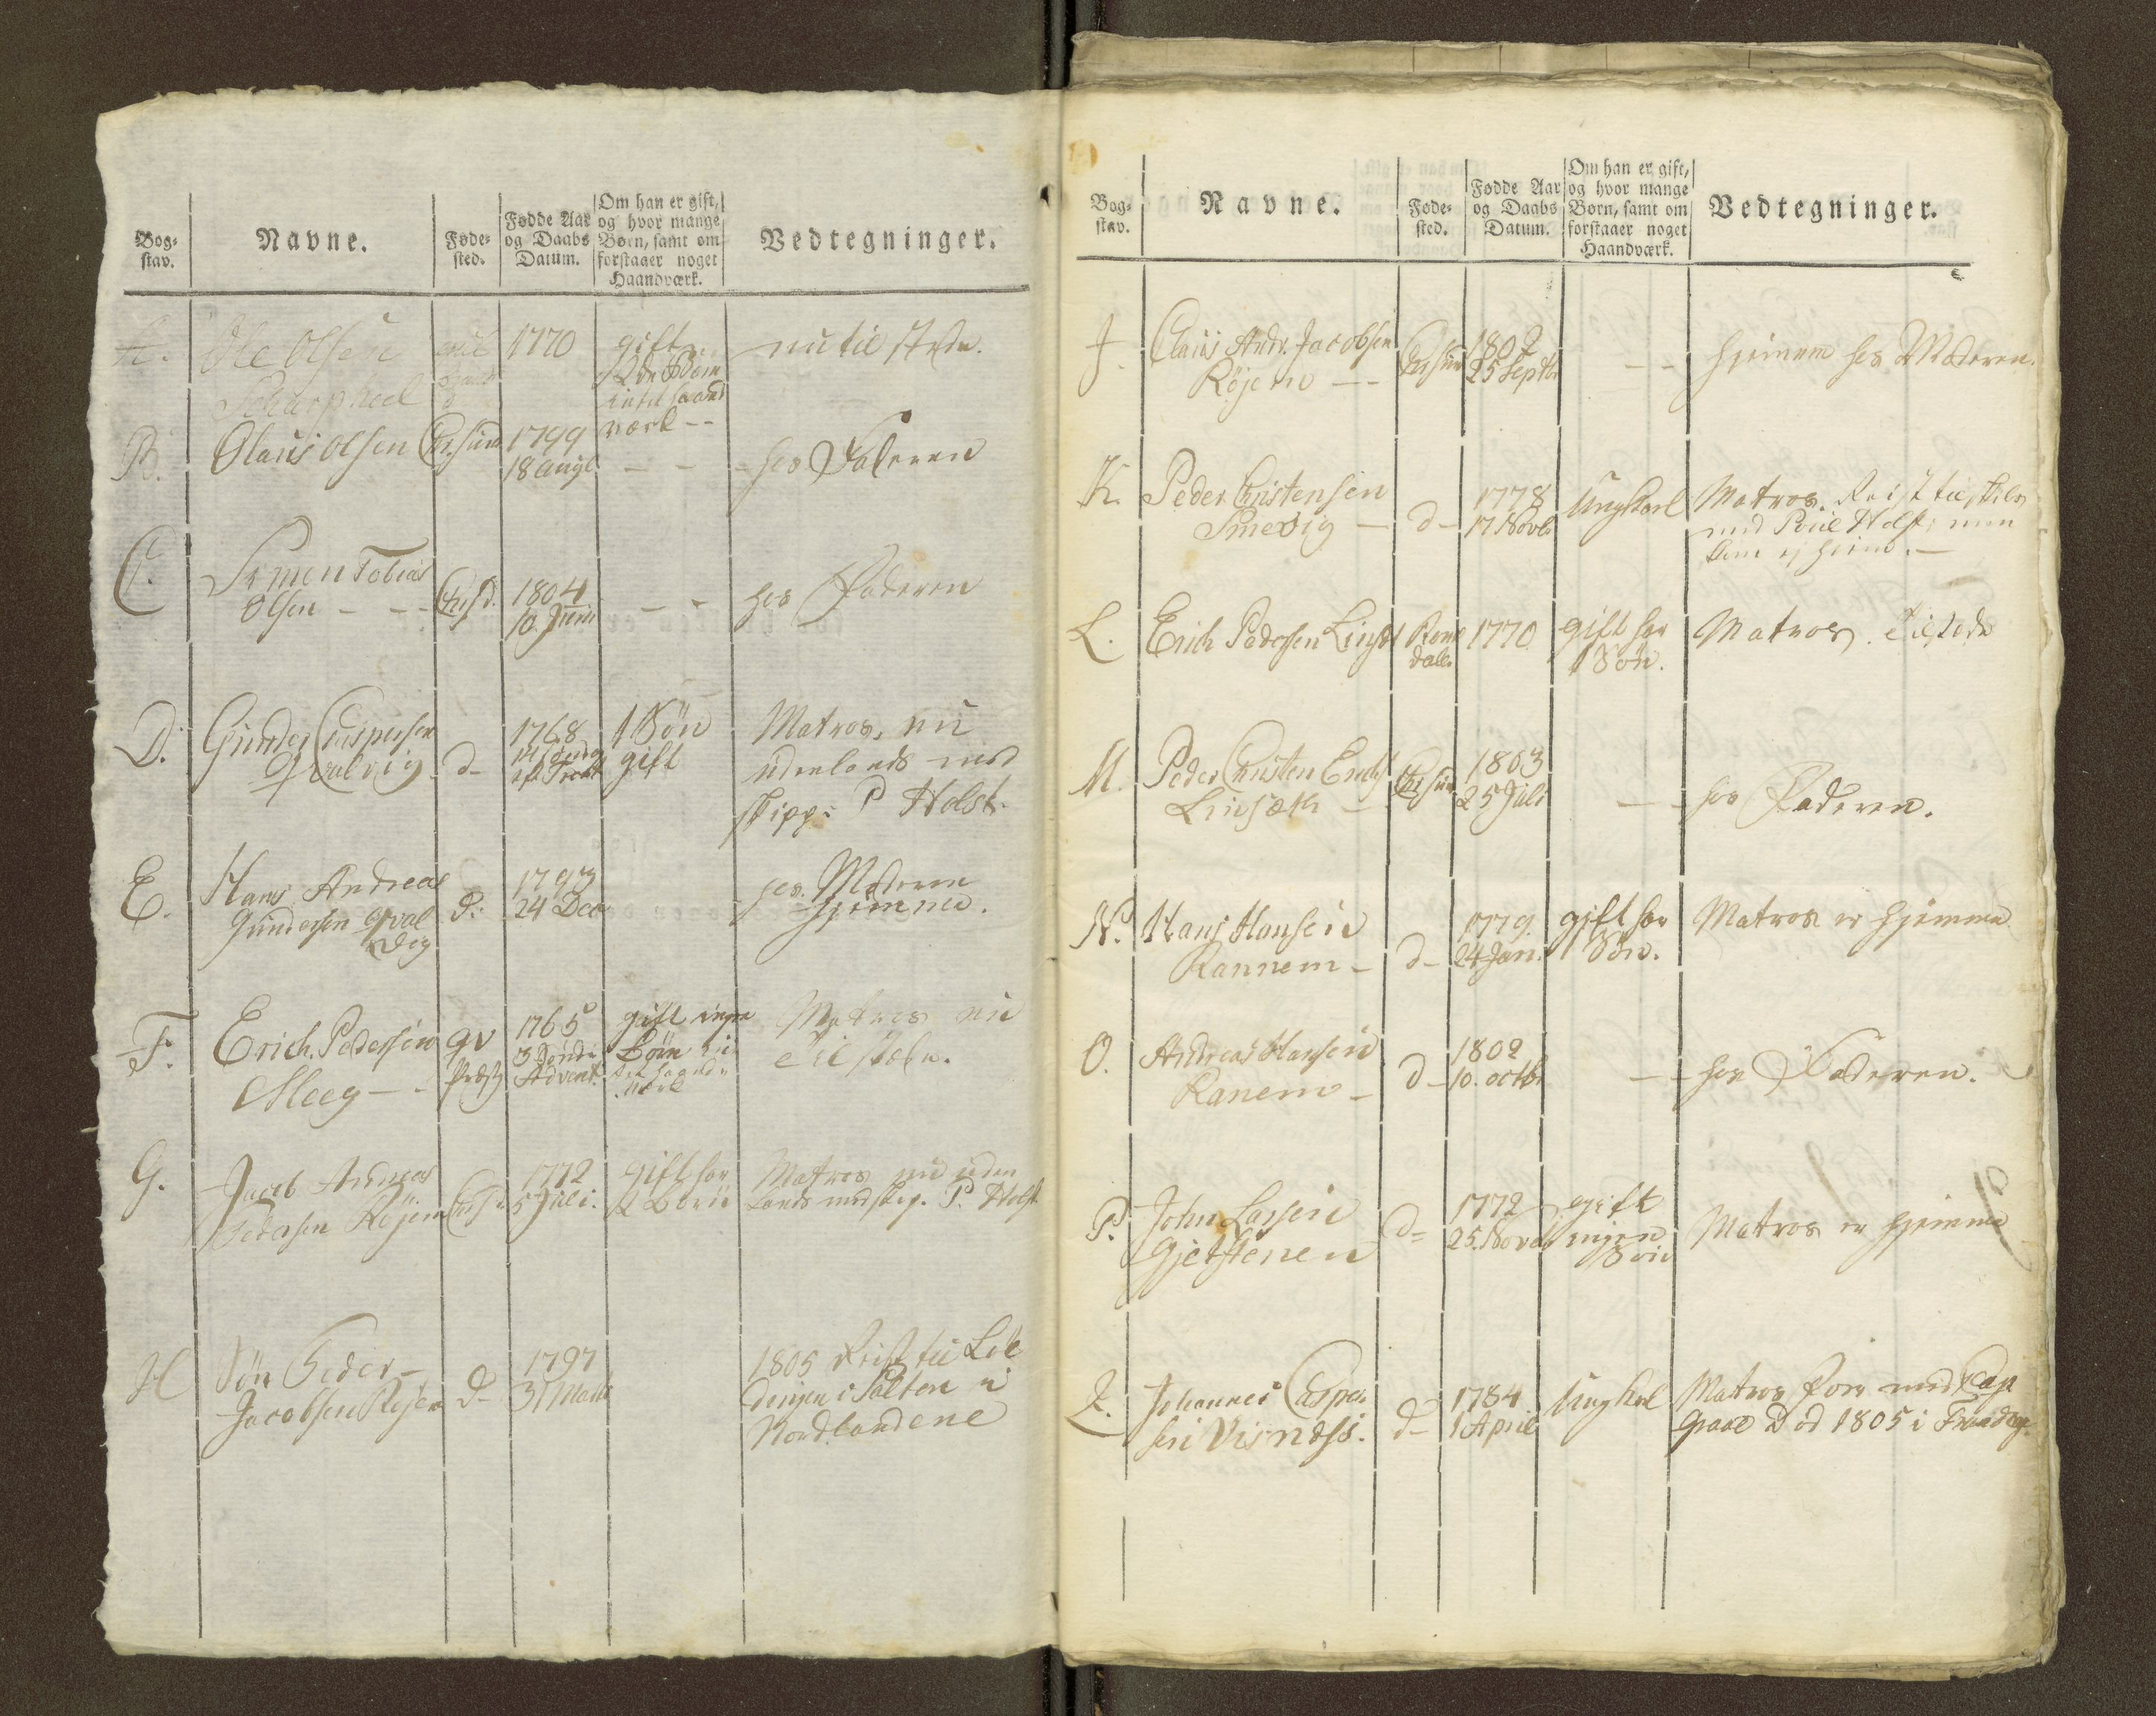 Bog-
stav.
Navne.
Føde-
sted.
Fødde Aar
og Daabs
Datum.
Om han er gift,
og hvor mange
Børn, samt om
forstaaer noget
Haandværk.
Vedtegninger.
A. Ole Olsen 1770 gift
intet haand
værk --
nu til stede.
B. Olaus Olsen Chrsund 1799
18 Augt. - - hos Faderen
C. Simon Tobias
Olsen - - - Chrsd. 1804
10 Junii - - hos Faderen
D. Gunder Caspersen
Qvalvig d- 1768 1 Søn
gift
Matros, nu
udenlands med
skipp: P Holst.
E. Hans Andreas
Gundersen Qval
vig d: 1793
24 Decr
hos Moderen
hjemme.
F. Erich Pedersen
Meeg - - 1765
3 Sønd:
Advent. gift ingen
Børn
Matros nu
tilstæde.
G. Jacob Andreas
Pedersen Røjem Chrsd 1772
5 Juli. gift har
2 Børn
Matros nu uden
Lands med skip. P. Holst
H Jøn Peder -
Jacobsen Røjem d- 1797
31 Marti
1805 Reist til Lød
dingen i Salten i
Nordlandene
Bog-
stav.
Navne.
Føde-
sted.
Fødde Aar
og Daabs
Datum.
Om han er gift,
og hvor mange
Børn, samt om
forstaaer noget
Haandværk.
Vedtegninger.
J. Claus Andr. Jacobsen
Røjem -- Chrsun 1802
25 Septbr - - hjemme hos Moderen.
K. Peder Christensen
Smevig - d- 1778
17 Novb. Ungkarl Matros. Reist
med Poul Holst, men
kom ej hjem. -
L. Erich Pedersen Linset Roms
dale. 1770 gift har
1 Søn. Matros. tilstede
M. Peder Christen Erichs
Linsæth - Chrsun 1803
25 Juli - - hos Faderen.
N. Hans Hansen
Rannem - d- 1779.
24 Jan. gift har
1 Søn. Matros er hjemme
O. Andreas Hansen
Ranem - d- 1802
10. octbr - - hos Faderen.
P. John Larsen
Gjetstenen d= 1772
25. Novb. gift
ingen
Børn Matros er hjemme
Q. Johannes Casper
sen Visnæss. d- 1784
1 April Ungkarl Matros foer med Cap
Graae Død 1805 i Trondhj.